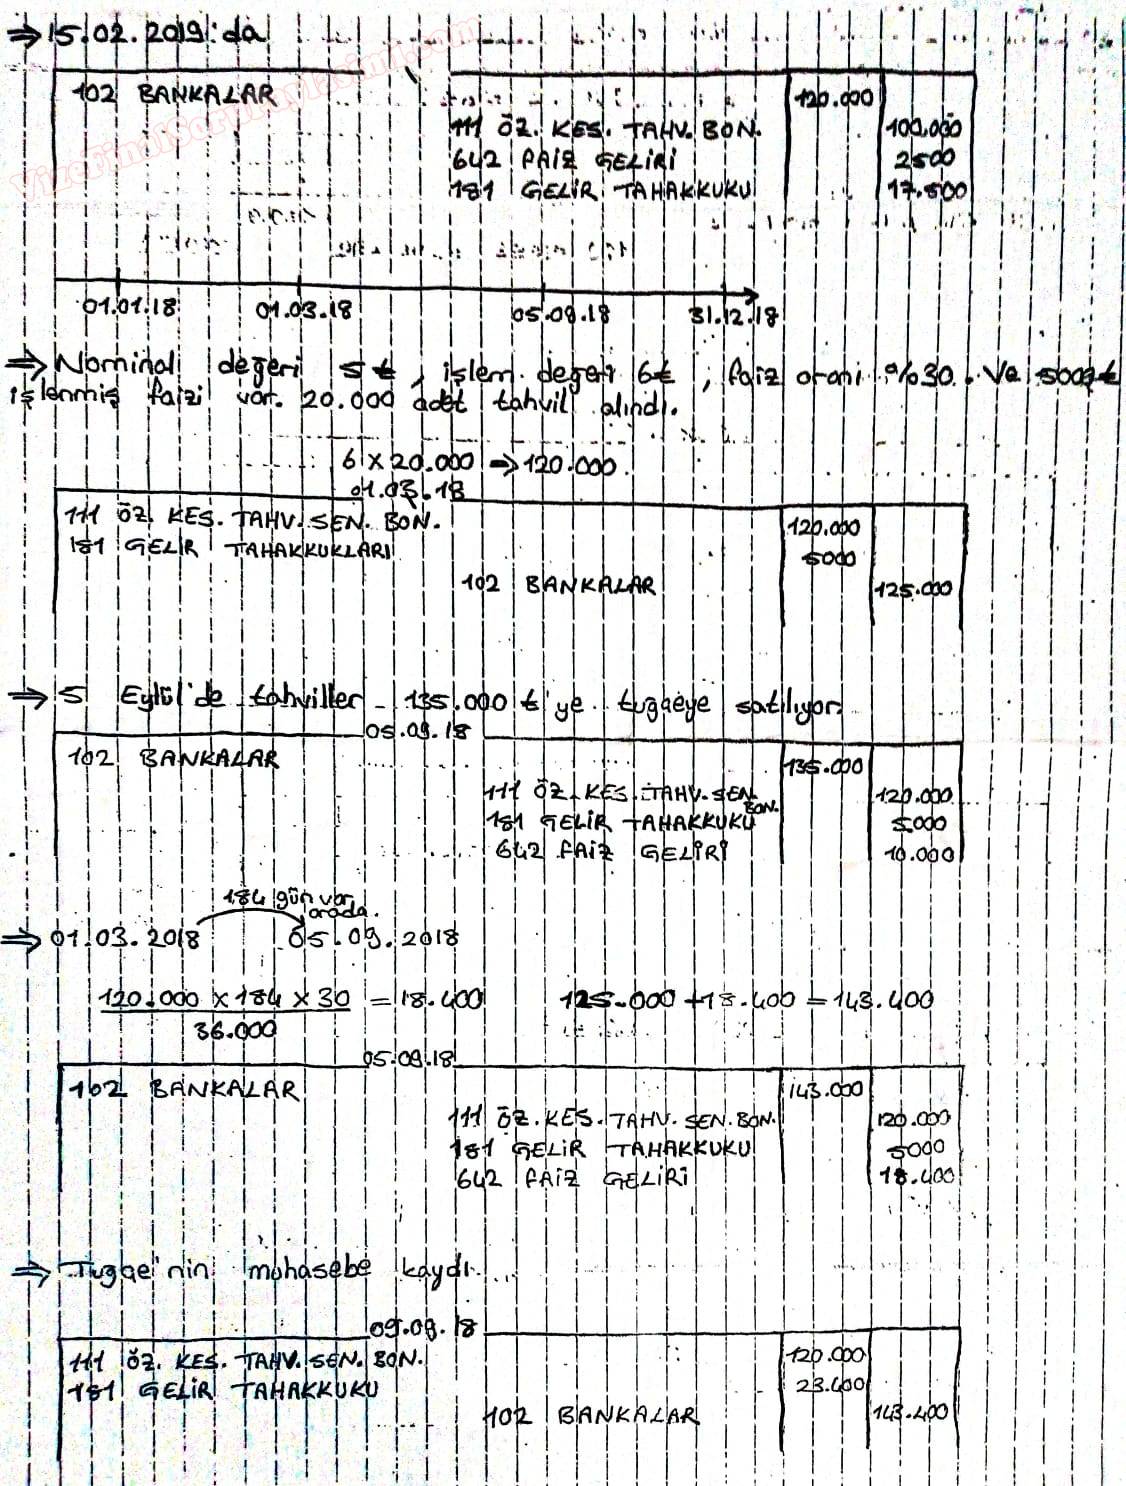 VizeFinalSoruPaylasimi.com
⇒ 15.02.2019'da
102 BANKALAR 120.000
111 ÖZ. KES. TAHV. BON. 100.000
642 FAİZ GELİRİ 2500
181 GELİR TAHAKKUKU 17.500
01.01.18 01.03.18 05.09.18 31.12.18
⇒ Nominal değeri 5 ₺, işlem değeri 6₺, faiz oranı %30. Ve 5000₺
işlenmiş faizi var. 20.000 adet tahvil alındı.
6 x 20.000 ⇒ 120.000
01.03.18
111 ÖZ. KES. TAHV. SEN. BON. 120.000
181 GELİR TAHAKKUKLARI 5000
102 BANKALAR 125.000
⇒ 5 Eylül'de tahviller 135.000 ₺'ye tugçeye satılıyor.
05.09.18
102 BANKALAR 135.000
111 ÖZ. KES. TAHV. SEN. BON. 120.000
181 GELİR TAHAKKUKU 5.000
642 FAİZ GELİRİ 10.000
184 gün var
arada.
⇒ 01.03.2018 05.09.2018
120.000 x 184 x 30 = 18.400 125.000 + 18.400 = 143.400
36.000
05.09.18
102 BANKALAR 143.000
111 ÖZ. KES. TAHV. SEN. BON. 120.000
181 GELİR TAHAKKUKU 5000
642 FAİZ GELİRİ 18.400
⇒ Tugçe'nin muhasebe kaydı.
09.09.18
111 ÖZ. KES. TAHV. SEN. BON. 120.000
181 GELİR TAHAKKUKU 23.400
102 BANKALAR 143.400